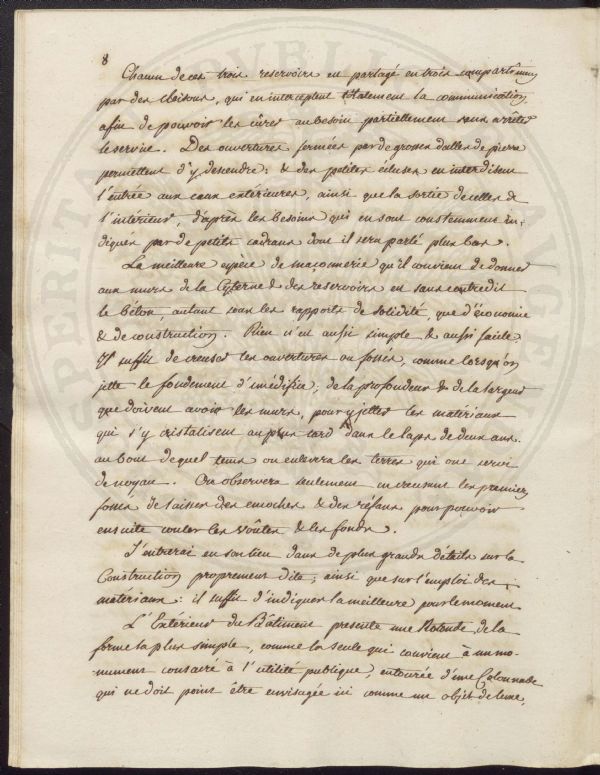 8
Chacun de ces trois reservoirs est partagé en trois compartimens
par des cloisons, qui en interceptent totalement la communication,
afin de pouvoir les curer au besoin partiellement sans arrêter
le service. Des ouvertures fermées par de grosses dalles de pierre
permettent d'y descendre: & des petites écluses en interdisent
l'entrée aux eaux extérieures, ainsi que la sortie de celles de
l'intérieur, d'après les besoins qui en sont constemment in-
diqués par de petits cadrans dont il sera parlé plus bas.
La meilleure espèce de maçonnerie qu'il convient de donner
aux murs de la Cyterne & des reservoirs est sans contredit
le béton, autant sous les rapports de solidité, que d'économie
& de construction. Rien n'est aussi simple & aussi facile
Il suffit de creuser les ouvertures ou fosses, comme lorsqu'on
jette le fondement d'un édifice; de la profondeur & de la largeur
que doivent avoir les murs, pour y jetter les matériaux
qui s'y cristalisent au plus tard dans le laps de deux ans.
au bout dequel tems on enlevera les terres qui ont servi
de noyau. On observera seulement en creusant les premiers
fosses de laisser des encoches & des réfaus pour pouvoir
ensuite couler les voûtes & les fonds.
J'entrerai en son lieu dans de plus grands détails sur la
Construction proprement dite; ainsi que sur l'emploi des
matériaux: il suffit d'indiquer la meilleure pour le moment
L'Extérieur du Bâtiment presente une Rotonde, de la
forme la plus simple, comme la seule qui convient à un mo-
nument consacré à l'utilité publique, entourée d'une Colonnade
qui ne doit point être envisagée ici comme un objet de luxe,